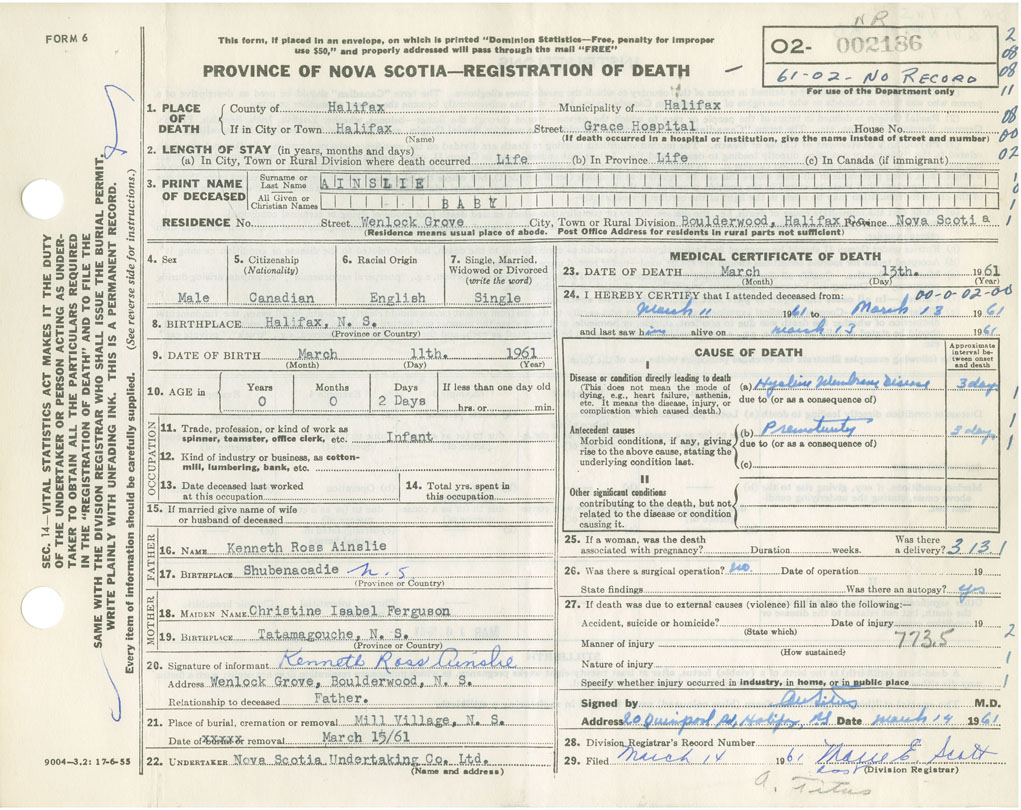 NR
FORM 6
This form, if placed in an envelope, on which is printed "Dominion Statistics—Free, penalty for improper
use $50," and properly addressed will pass through the mail "FREE"
O2- 002186
61-02- NO RECORD
For use of the Department only
PROVINCE OF NOVA SCOTIA—REGISTRATION OF DEATH
1. PLACE OF DEATH
County of Halifax Municipality of Halifax
If in City or Town Halifax Street Grace Hospital House No.
(Name) (If death occurred in a hospital or institution, give the name instead of street and number)
2. LENGTH OF STAY (in years, months and days)
(a) In City, Town or Rural Division where death occurred Life (b) In Province Life (c) In Canada (if immigrant)
3. PRINT NAME OF DECEASED
Surname or Last Name AINSLIE
All Given or Christian Names BABY
RESIDENCE No. Street Wenlock Grove City, Town or Rural Division Boulderwood, Halifax Co. Province Nova Scotia
(Residence means usual place of abode. Post Office Address for residents in rural parts not sufficient)
SEC. 14—VITAL STATISTICS ACT MAKES IT THE DUTY
OF THE UNDERTAKER OR PERSON ACTING AS UNDER-
TAKER TO OBTAIN ALL THE PARTICULARS REQUIRED
IN THE "REGISTRATION OF DEATH" AND TO FILE THE
SAME WITH THE DIVISION REGISTRAR WHO SHALL ISSUE THE BURIAL PERMIT.
WRITE PLAINLY WITH UNFADING INK. THIS IS A PERMANENT RECORD.
Every item of information should be carefully supplied. (See reverse side for instructions.)
4. Sex
Male
5. Citizenship
(Nationality)
Canadian
6. Racial Origin
English
7. Single, Married,
Widowed or Divorced
(write the word)
Single
8. BIRTHPLACE Halifax, N. S.
(Province or Country)
9. DATE OF BIRTH March 11th. 1961
(Month) (Day) (Year)
10. AGE in
Years 0
Months 0
Days 2 Days
If less than one day old
hrs. or min.
OCCUPATION
11. Trade, profession, or kind of work as
spinner, teamster, office clerk, etc. Infant
12. Kind of industry or business, as cotton-
mill, lumbering, bank, etc.
13. Date deceased last worked
at this occupation
14. Total yrs. spent in
this occupation
15. If married give name of wife
or husband of deceased
FATHER
16. NAME Kenneth Ross Ainslie
17. BIRTHPLACE Shubenacadie N. S
(Province or Country)
MOTHER
18. MAIDEN NAME Christine Isabel Ferguson
19. BIRTHPLACE Tatamagouche, N. S.
(Province or Country)
20. Signature of informant Kenneth Ross Ainslie
Address Wenlock Grove, Boulderwood, N. S.
Relationship to deceased Father.
21. Place of burial, cremation or removal Mill Village, N. S.
Date of xxxxx removal March 15/61
22. UNDERTAKER Nova Scotia Undertaking Co. Ltd.
(Name and address)
9004—3.2: 17-6-55
MEDICAL CERTIFICATE OF DEATH
23. DATE OF DEATH March 13th. 1961
(Month) (Day) (Year)
24. I HEREBY CERTIFY that I attended deceased from: 00-0-02-00
March 11 1961 to March 13 1961
and last saw him alive on March 13 1961
CAUSE OF DEATH
Approximate
interval be-
tween onset
and death
I
Disease or condition directly leading to death
(This does not mean the mode of
dying, e.g., heart failure, asthenia,
etc. It means the disease, injury, or
complication which caused death.)
(a) Hyaline Membrane Disease 3 days
due to (or as a consequence of)
Antecedent causes
Morbid conditions, if any, giving
rise to the above cause, stating the
underlying condition last.
(b) Prematurity 3 days
due to (or as a consequence of)
(c)
II
Other significant conditions
contributing to the death, but not
related to the disease or condition
causing it.
25. If a woman, was the death
associated with pregnancy? Duration weeks. Was there
a delivery? 3 13 1
26. Was there a surgical operation? no Date of operation 19
State findings Was there an autopsy? yes
27. If death was due to external causes (violence) fill in also the following:—
Accident, suicide or homicide? Date of injury 19
(State which)
Manner of injury 773.5
(How sustained)
Nature of injury
Specify whether injury occurred in industry, in home, or in public place
Signed by M.D.
Address 20 Quinpool Rd, Halifax, NS Date March 14 1961
28. Division Registrar's Record Number
29. Filed March 14 1961 E. Scott
(Division Registrar)
A. Titus
2
08
08
11
08
00
02
1
2
1
1